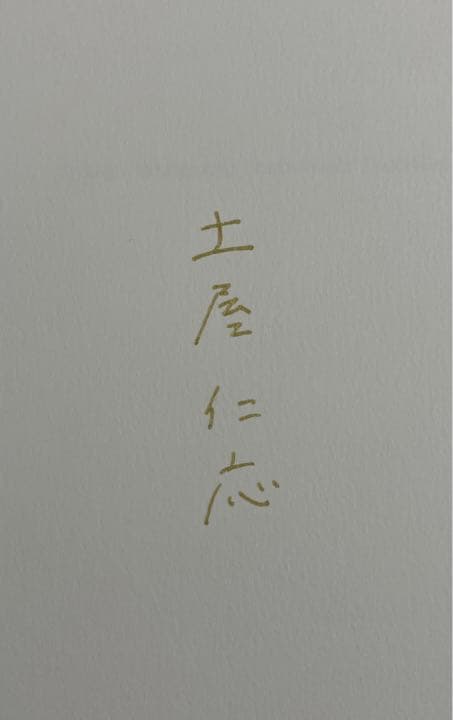 土屋仁応